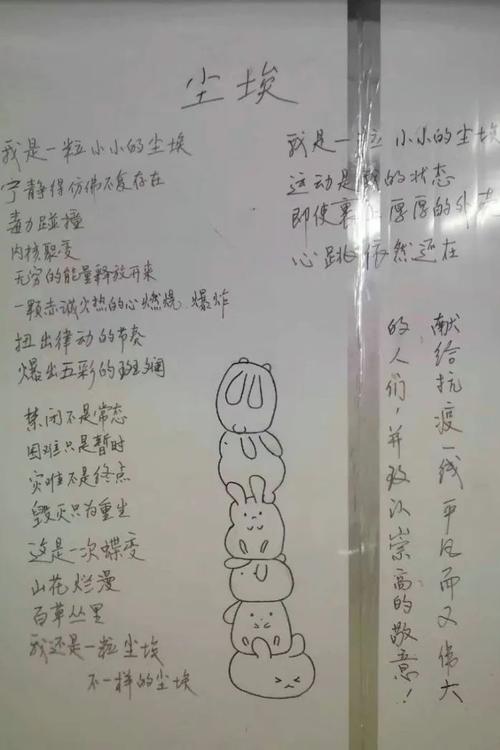 尘埃
我是一粒小小的尘埃
宁静得仿佛不复存在
碰撞
内核裂变
无穷的能量释放开来
一颗赤诚火热的心燃烧 爆炸
扭出律动的节奏
爆出五彩的斑斓
禁闭不是常态
困难只是暂时
灾难不是终点
毁灭只为重生
这是一次蝶变
山花烂漫
百草丛里
我还是一粒尘埃
不一样的尘埃
我是一粒小小的尘埃
运动是我的状态
即使裹上厚厚的外
心跳依然还在
献给抗疫一线平凡而又伟大
的人们,并致以崇高的敬意!